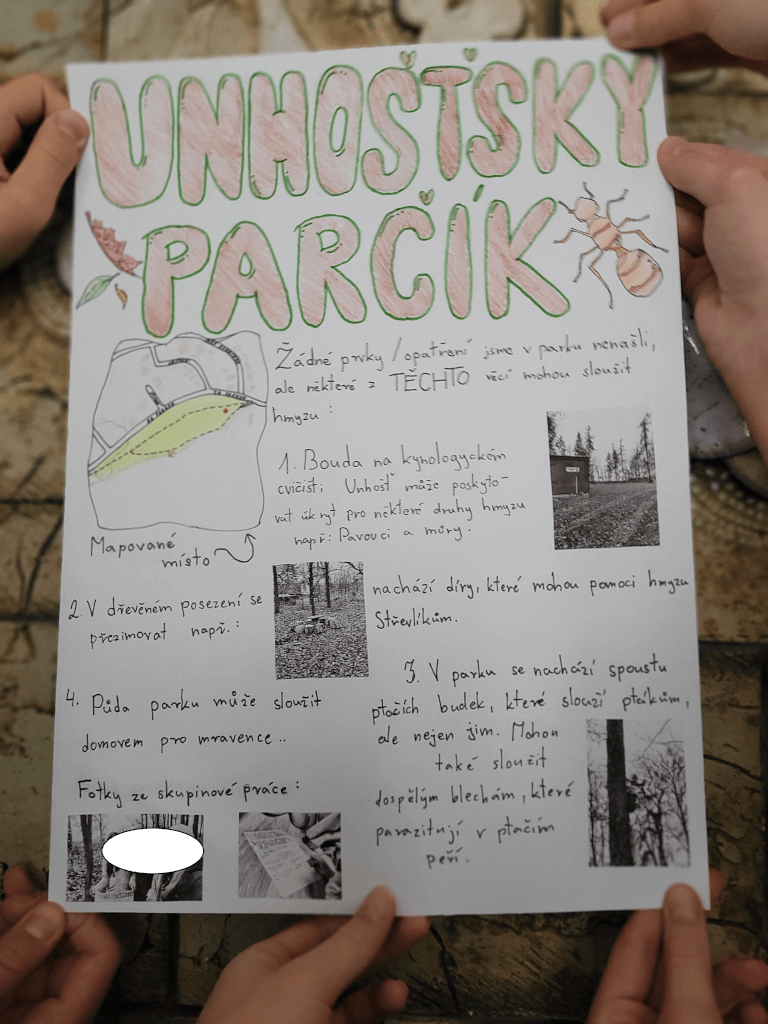 UNHOŠŤSKY
PARČÍK
Žádné prvky/opatření jsme v parku nenašli,
ale některé z TĚCHTO věcí mohou sloužit
hmyzu:
1. Bouda na kynologyckém
cvičišti Unhošť může poskyto-
vat úkryt pro některé druhy hmyzu
např: Pavouci a můry.
Mapované
místo
2. V dřevěném posezení se nachází díry, které mohou pomoci hmyzu
přezimovat např.: Střevlíkům.
3. V parku se nachází spoustu
ptačích budek, které slouží ptákům,
ale nejen jim. Mohou
také sloužit
dospělým blechám, které
parazitují v ptačím
peří.
4. Půda parku může sloužit
domovem pro mravence..
Fotky ze skupinové práce: